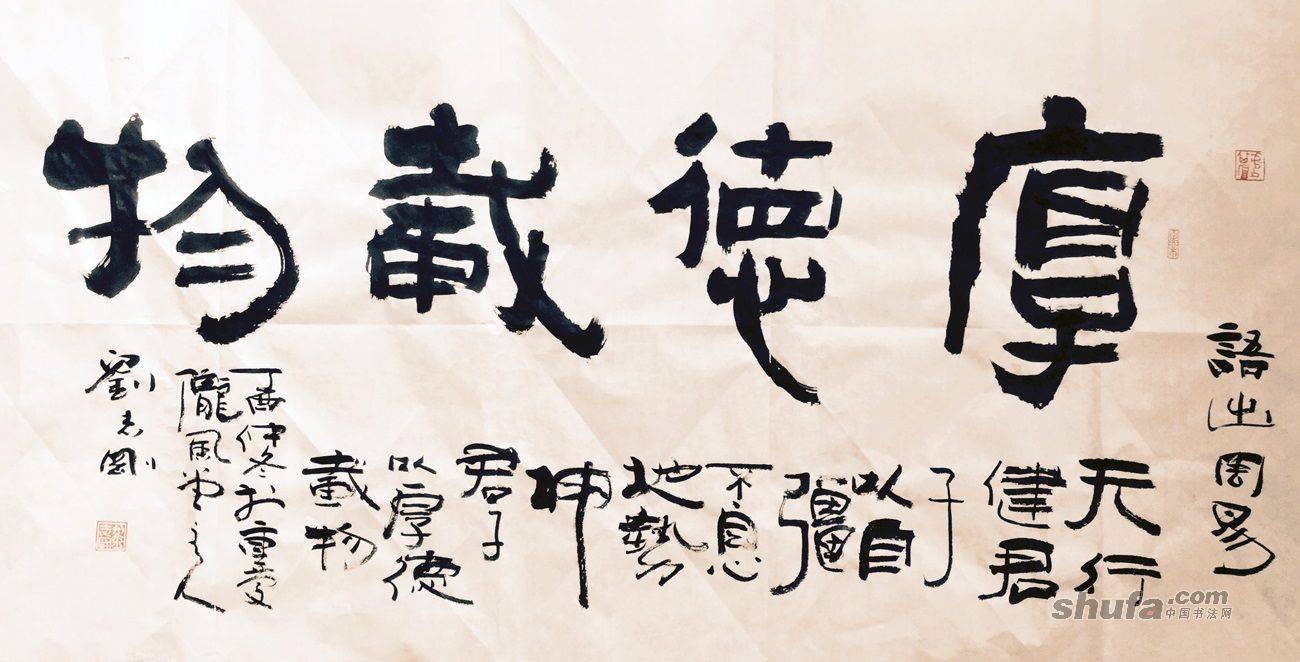 厚德載物
語出周易
天行
健君
子
以自
彊
不息
地勢
坤
君子
以厚德
載物
丁酉仲冬於重慶
隴風堂主人
劉志剛
shufa.com
中国书法网